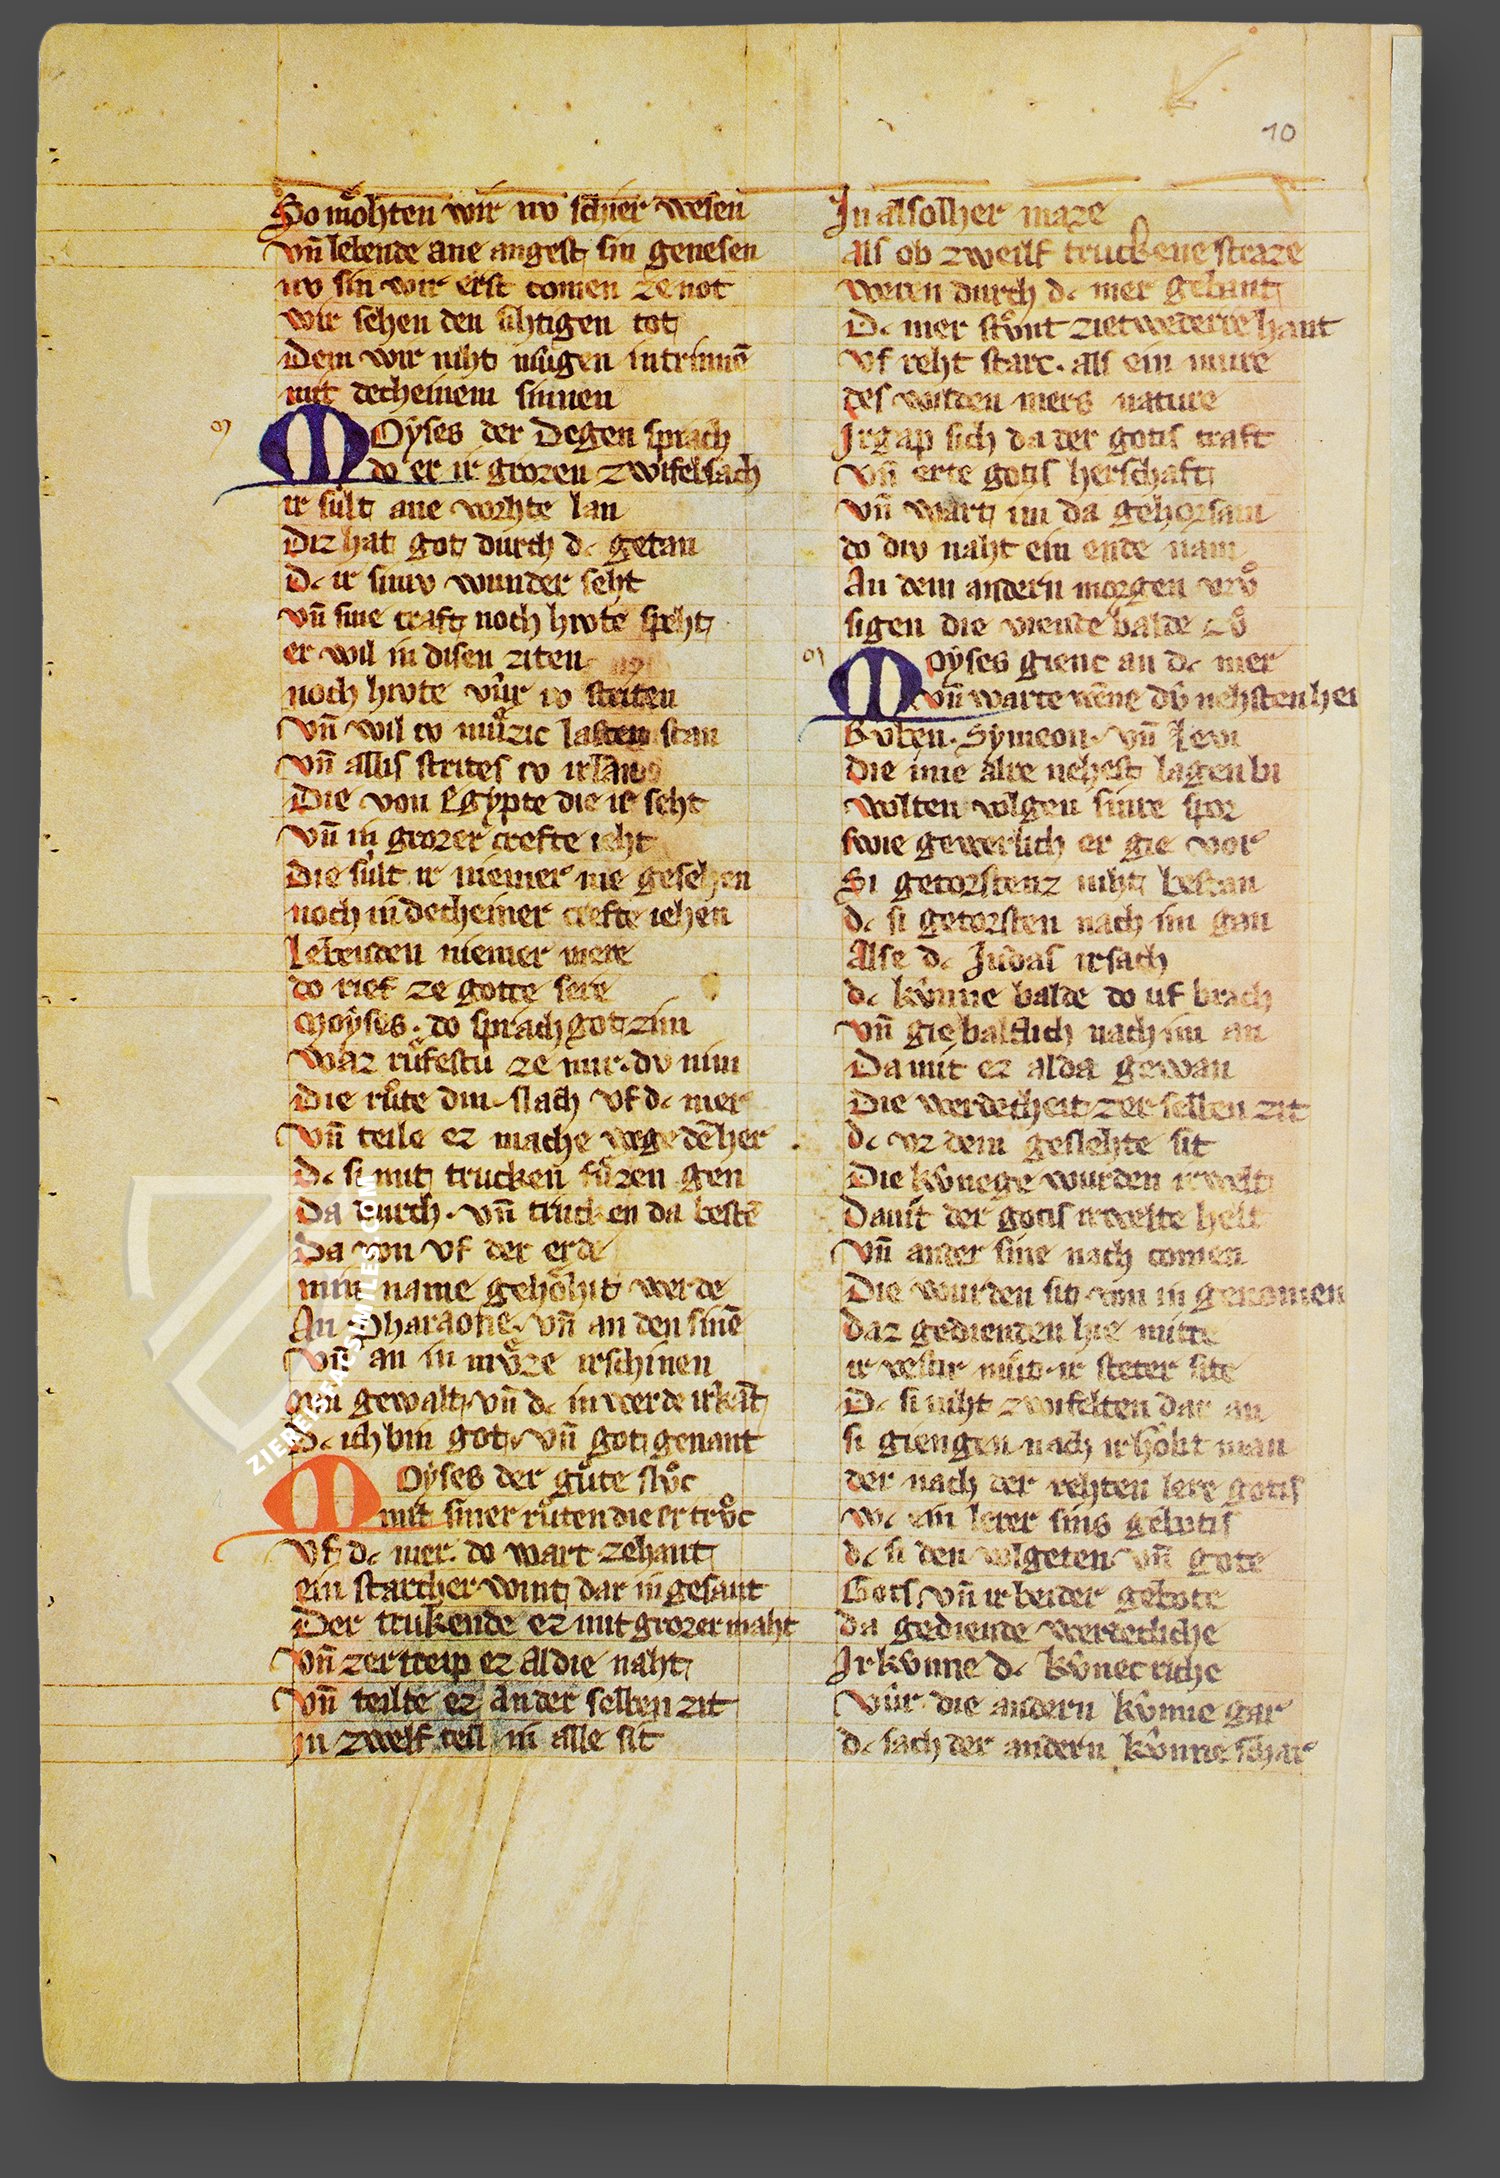 10
So moͤhten wir nv schier wesen
vn̄ lebende ane angest sin genesen
nv sin wir erst comen ze not
wir sehen den sihtigen tot
Dem wir niht mûgen intrinnē
mit decheinem sinnen
m
Moyses der degen sprach
do er ir grozen zwifel sach
ir sult ane vorhte lan
Diz hat got durch dc getan
Dc ir sinv wunder seht
vn̄ sine craft noch hvte speht
er wil in disen ziten
noch hvte vûr iv striten
vn̄ wil iv muͤzic lasten stan
vn̄ allis strites iv irlan
Die von Egypte die ir seht
vn̄ in grozer crefte ieht
Die sult ir niemer me gesehen
noch in decheiner crefte iehen
Lebenden niemer mere
do rief ze gotte sere
Moyses. do sprach got zim
waz ruͤfestu ze mir. dv nim
Die ruͦte din. slach vf dc mer
vn̄ teile ez mache wege dē her
Dc si mit trucken fuͤzen gen
Da durch. vn̄ trucken da bestē
Da von vf der erde
min name gehoͤhit werde
An Pharaone. vn̄ an den sinē
vn̄ an in mvͤze irschinen
min gewalt. vn̄ dc in werde irkāt
Dc ich bin got. vn̄ got genant
Moyses der guͦte slvͦc
mit siner ruͦten die er trvͦc
vf dc mer. do wart zehant
ein starcher wint dar in gesant
Der trukende ez mit grozer maht
vn̄ zertreip ez al die naht
vn̄ teilte ez an der selben zit
in zwelf teil in alle sit
In alsolher maze
als ob zweilf truckene straze
weren durch dc mer gebant
Dc mer stvͦnt zietwederre hant
vf reht starc. als ein mure
des wilden mers nature
Irgap sich da der gotis craft
vn̄ erte gotis herschaft
vn̄ wart im da gehorsam
do div naht ein ende nam
An dem andern morgen vrvͦ
sigen die viende balde zvͦ
m
Moyses gienc an dc mer
vn̄ warte wēne dv̂ nehsten her
Rvben. Symeon. vn̄ Levi
die ime alre nehest lagen bi
wolten volgen sime spor
swie gewerlich er gie vor
Si getorstenz niht bestan
dc si getorsten nach im gan
Alse dc Judas irsach
dc kv̂nne balde do uf brach
vn̄ gie baltlich nach im an
Da mit ez alda gewan
Die werdecheit zer selben zit
dc vz dem geslehte sit
Die kv̂nege wurden irwelt
Dauit der gotis irwelte helt
vn̄ ander sine nach comen
Die wurden sit von in genomen
daz gedienden hie mitte
ir vestir mût. ir steter site
Dc si niht zwifelten dar an
si giengen nach ir hoͮbt man
der nach der rehten lere gotis
wc ein lerer sins gebotis
dc si den volgeten vn̄ gote
Gots vn̄ ir beider gebote
da gediende werdecliche
Ir kv̂nne dc kv̂nec riche
vûr die andern kv̂nne gar
dc sach der andern kv̂nne schar
ZIEREIS FACSIMILES.COM